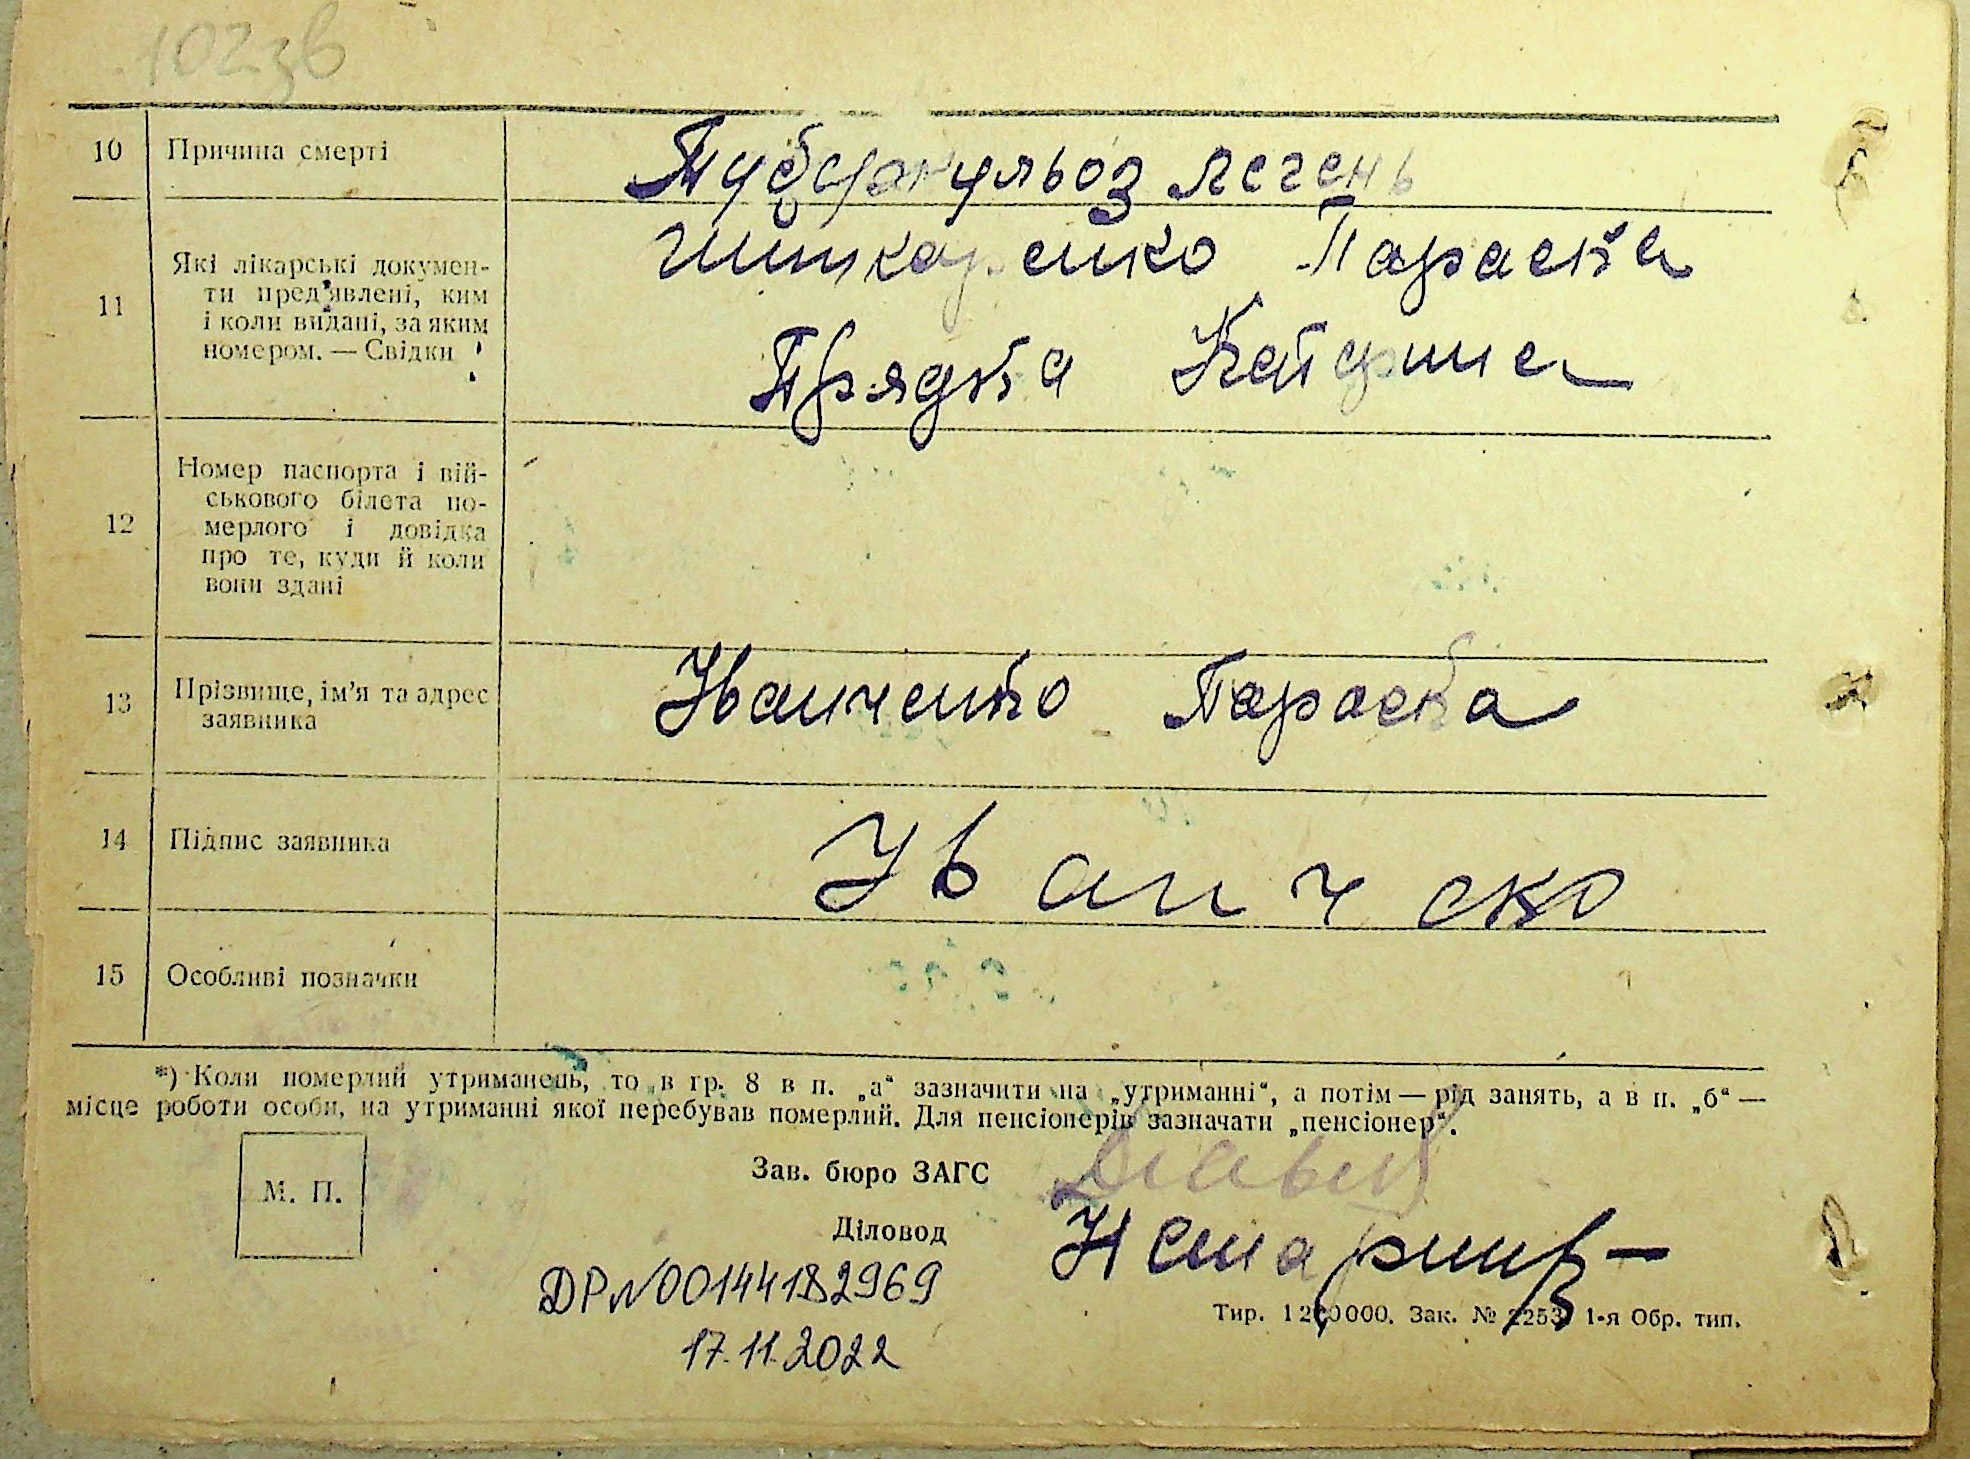 102зв
10 Причина смерті Туберкульоз легень
11 Які лікарські докумен-
ти пред'явлені, ким
і коли видані, за яким
номером. — Свідки
Параска
Прядка
12 Номер паспорта і вій-
ськового білета по-
мерлого і довідка
про те, куди й коли
вони здані
13 Прізвище, ім'я та адрес
заявника
Іванченко Параска
14 Підпис заявника Іванченко
15 Особливі позначки
*) Коли померлий утриманець, то в гр. 8 в п. „а“ зазначити на „утриманні“, а потім — рід занять, а в п. „б“ —
місце роботи особи, на утриманні якої перебував померлий. Для пенсіонерів зазначати „пенсіонер“.
М. П.
Зав. бюро ЗАГС
Діловод
ДР №00144182969
17.11.2022
Тир. 1 200000. Зак. № 2253 1-я Обр. тип.